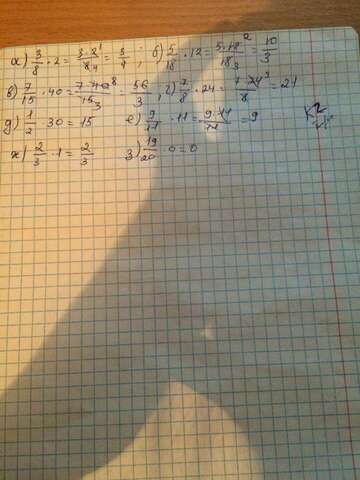 а) 3/8 · 2 = 3·2¹/8₄ = 3/4 ; б) 5/18 · 12 = 5·12²/18₃ = 10/3
в) 7/15 · 40 = 7·40⁸/15₃ = 56/3 ; г) 7/8 · 24 = 7·24³/8 = 21
д) 1/2 · 30 = 15 е) 9/11 · 11 = 9·11/11 = 9
ж) 2/3 · 1 = 2/3 з) 19/20 · 0 = 0